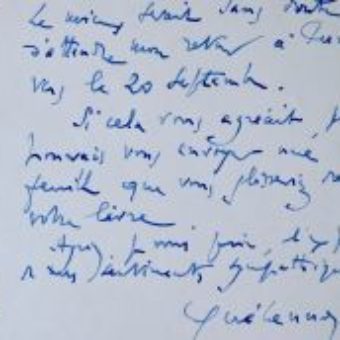 Le mieux serait sans doute
d'attendre mon retour à
vers le 20 septembre.
Si cela vous agréait, je
pourrais vous envoyer une
feuille que vous glisseriez
votre livre
Agréez je vous prie,
sentiments sympathiques